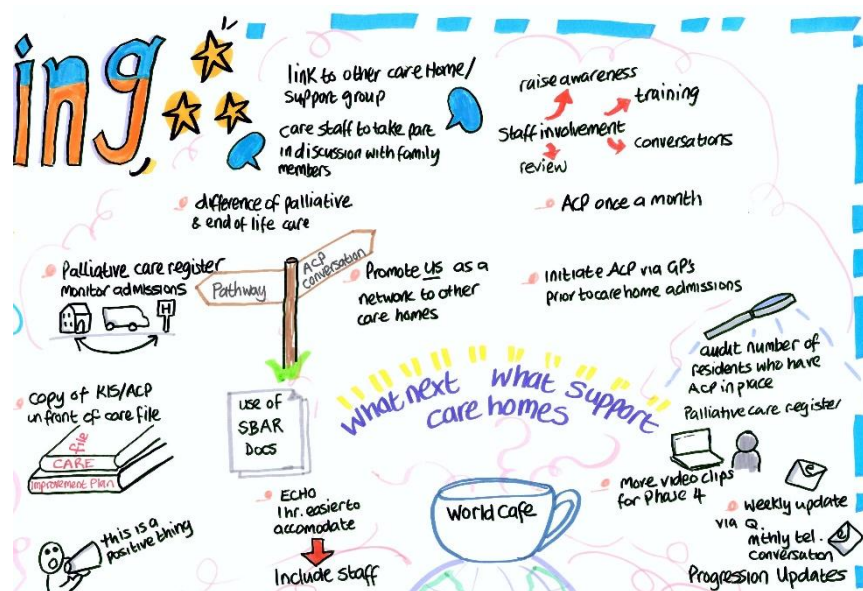 ing
link to other care Home/
support group
care staff to take part
in discussion with family
members
raise awareness
training
Staff involvement
conversations
review
difference of palliative
& end of life care
ACP once a month
Palliative care register
monitor admissions
H
Pathway
ACP
conversation
Promote US as a
network to other
care homes
Initiate ACP via GP's
prior to care home admissions
audit number of
residents who have
ACP in place
Palliative care register
copy of KIS/ACP
in front of care file
file
CARE
Improvement Plan
use of
SBAR
Docs
what next what support
care homes
this is a
positive thing
ECHO
1 hr. easier to
accomodate
Include staff
World Cafe
More video clips
for Phase 4
e
weekly update
via Q.
mthly tel.
conversation
e
Progression Updates